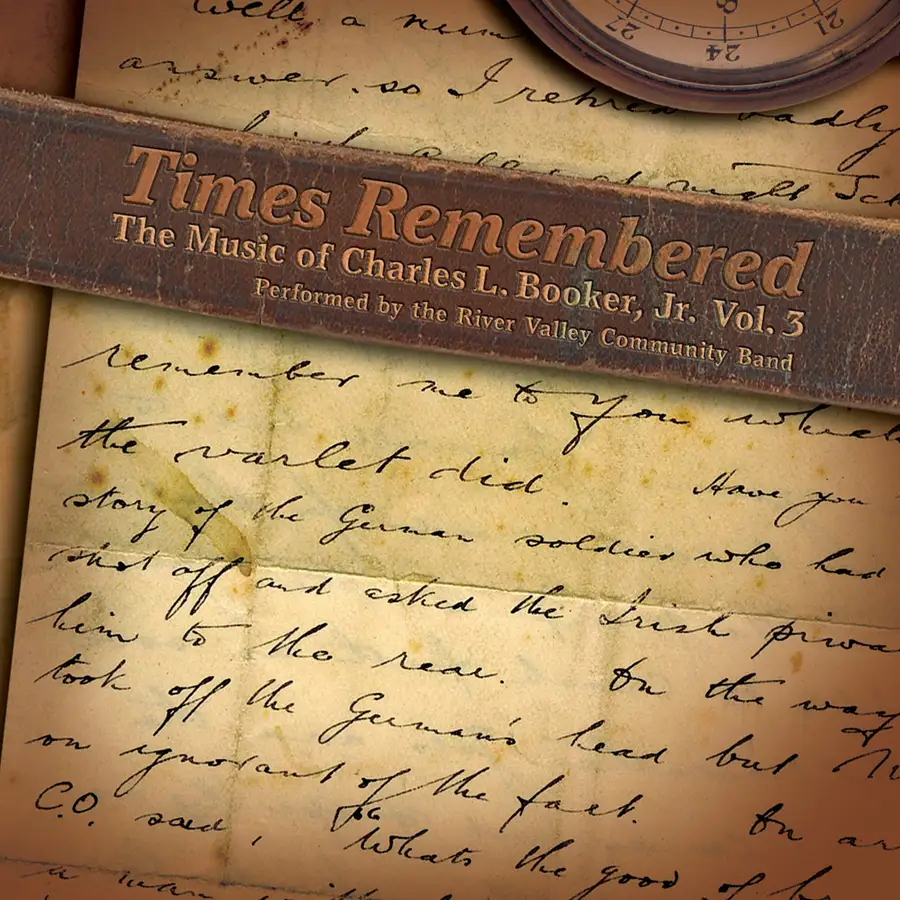 Well a
answer. so I retired badly
night
Times Remembered
The Music of Charles L. Booker, Jr. Vol. 3
Performed by the River Valley Community Band
27
24
21
8
remember me to you
the varlet did. Have you
story of the German soldier who had
shot off and asked the Irish
him to the rear. On the way
took off the German's head but
on ignorant of the fact. On
C.O. said, Whats the good of